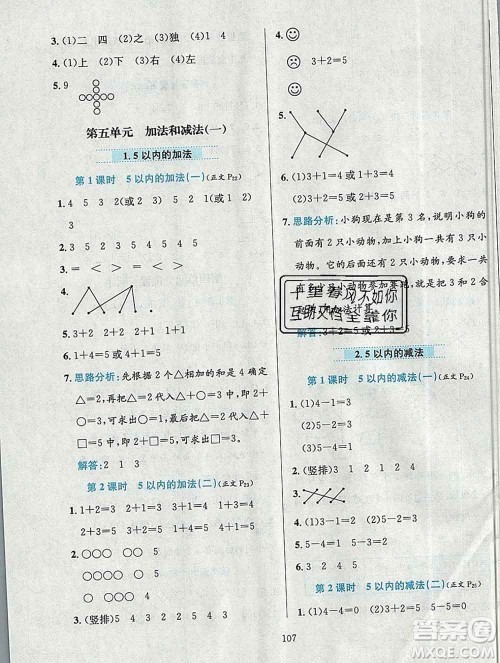 3.(1)二 四 (2)之 (3)独 (4)1 4
4.(1)上 (2)下 (3)右 (4)左
5.9
第五单元 加法和减法(一)
1.5以内的加法
第1课时 5以内的加法(一)(正文P22)
1.4 5 3 1或3 2或1 3或2
2.
3.= < > < = >
4.
5.3+2 2+2 1+2
6.1+4=5
7.思路分析:先根据2个△相加的和是
4,再把△=2代入△+○=5,可
求出○=3,最后把△=2代入
2+□=5,可求出□=1。
解答:2 1 3
第2课时 5以内的加法(二)(正文P23)
1.1+2=3 1+3=4 4+1=5
2+3=5 3+1=4 2+1=3
2.○○○ ○○ ○
○○○○ ○○○
3.(竖排)3 4 5 4 3 2
4.5 4 3 5 4 3 2 2 5 4 3
4.
3+2=5
5.
6.(1)3+1=4或1+3=4
(2)3+2=5或2+3=5
7.思路分析:小狗现在是第3名,说明小狗的
前面有2只小动物,后面有3只小动
物。它的后面还有2只小动物,现
解答:3+2=5或2+3=5
十里春风不如你
互助文档全靠你
2.5以内的减法
第1课时 5以内的减法(一)(正文P24)
1.(1)4-1=3 (2)5-1=4
2.(1)5-4=1 (2)4-2=2
3.(竖排)3 2 4 1 1
4.
5.3 2 1
6.(1)4-1=3 (2)4-3=1
第2课时 5以内的减法(二)(正文P25)
1.(1)4-4=0 (2)5-5=0
107
答案圈
MXQE.COM